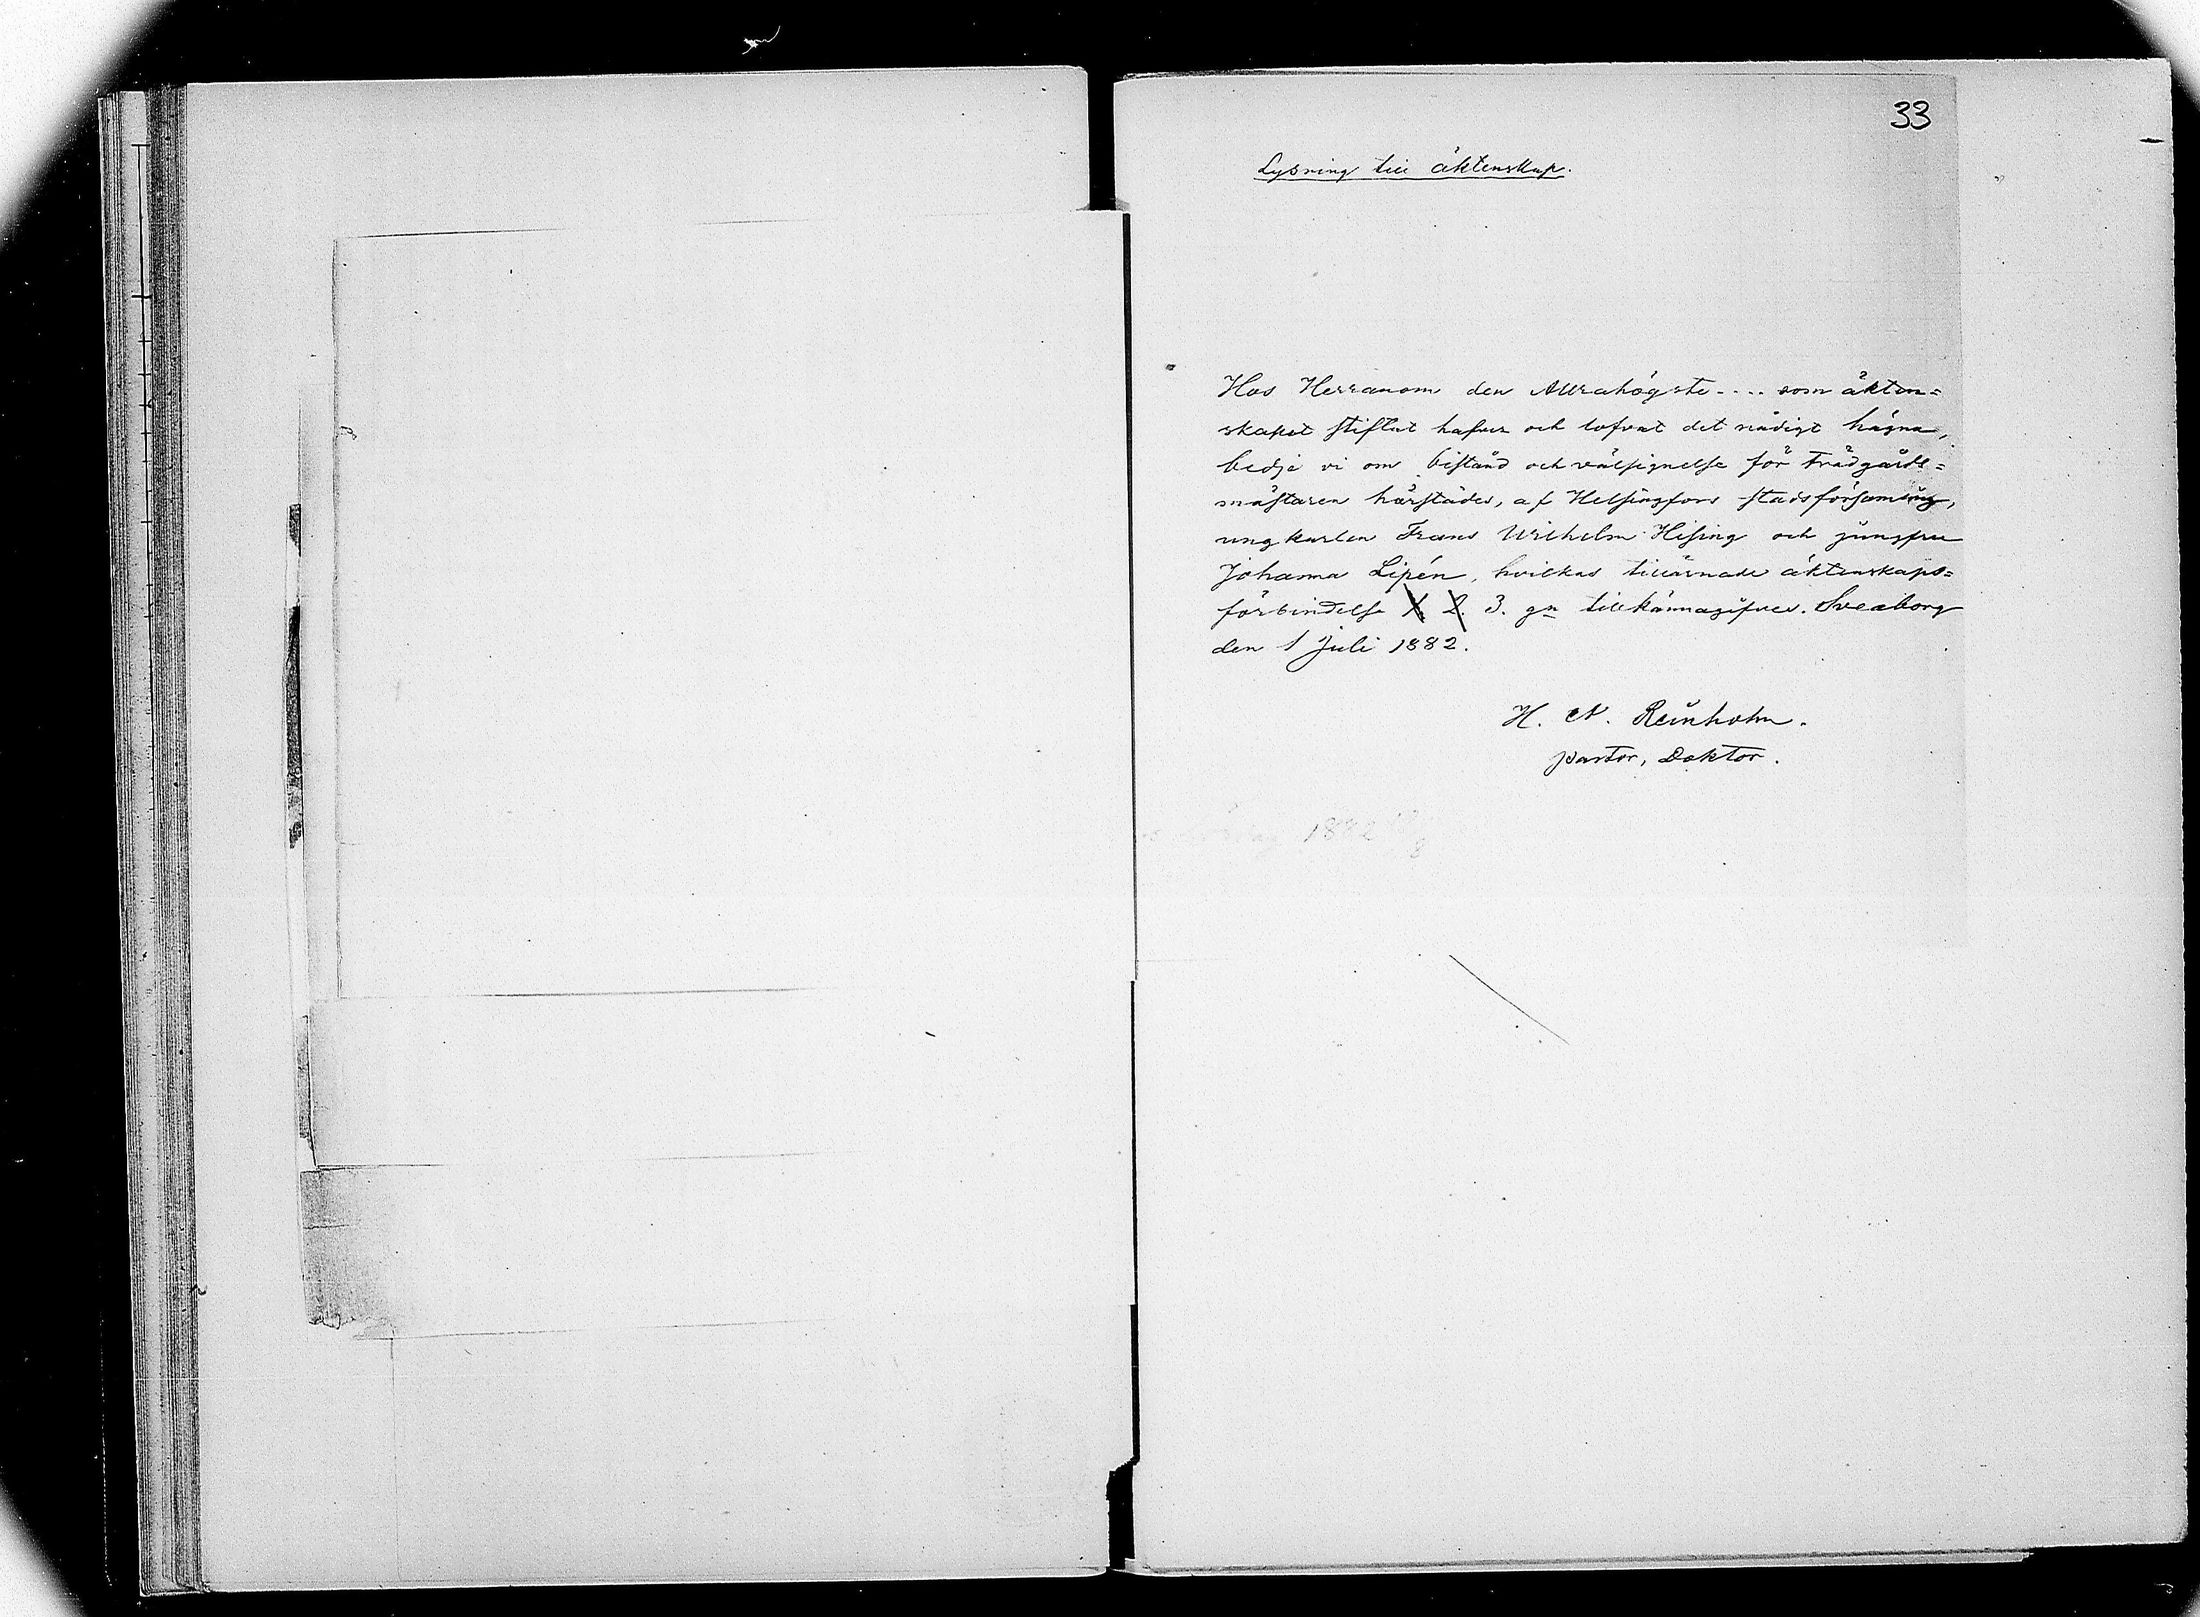 33
Lysning till äktenskap.
Hos Herranom den Allrahögste.... som äkten=
skapet stiftat hafver och lofvat det nådigt hägna,
bedje vi om bistånd och välsignelse för Trädgårds=
mästaren härstädes, af Helsingfors stadsförsamling,
ungkarlen Frans Wilhelm Hising och jungfru
Johanna Lipén, hvilkas tillärnade äktenskaps=
förbindelse 1. 2. 3. gn tillkännagifves. Sveaborg
den 1 Juli 1882.
H. A. Reinholm.
pastor, Doktor.
1882